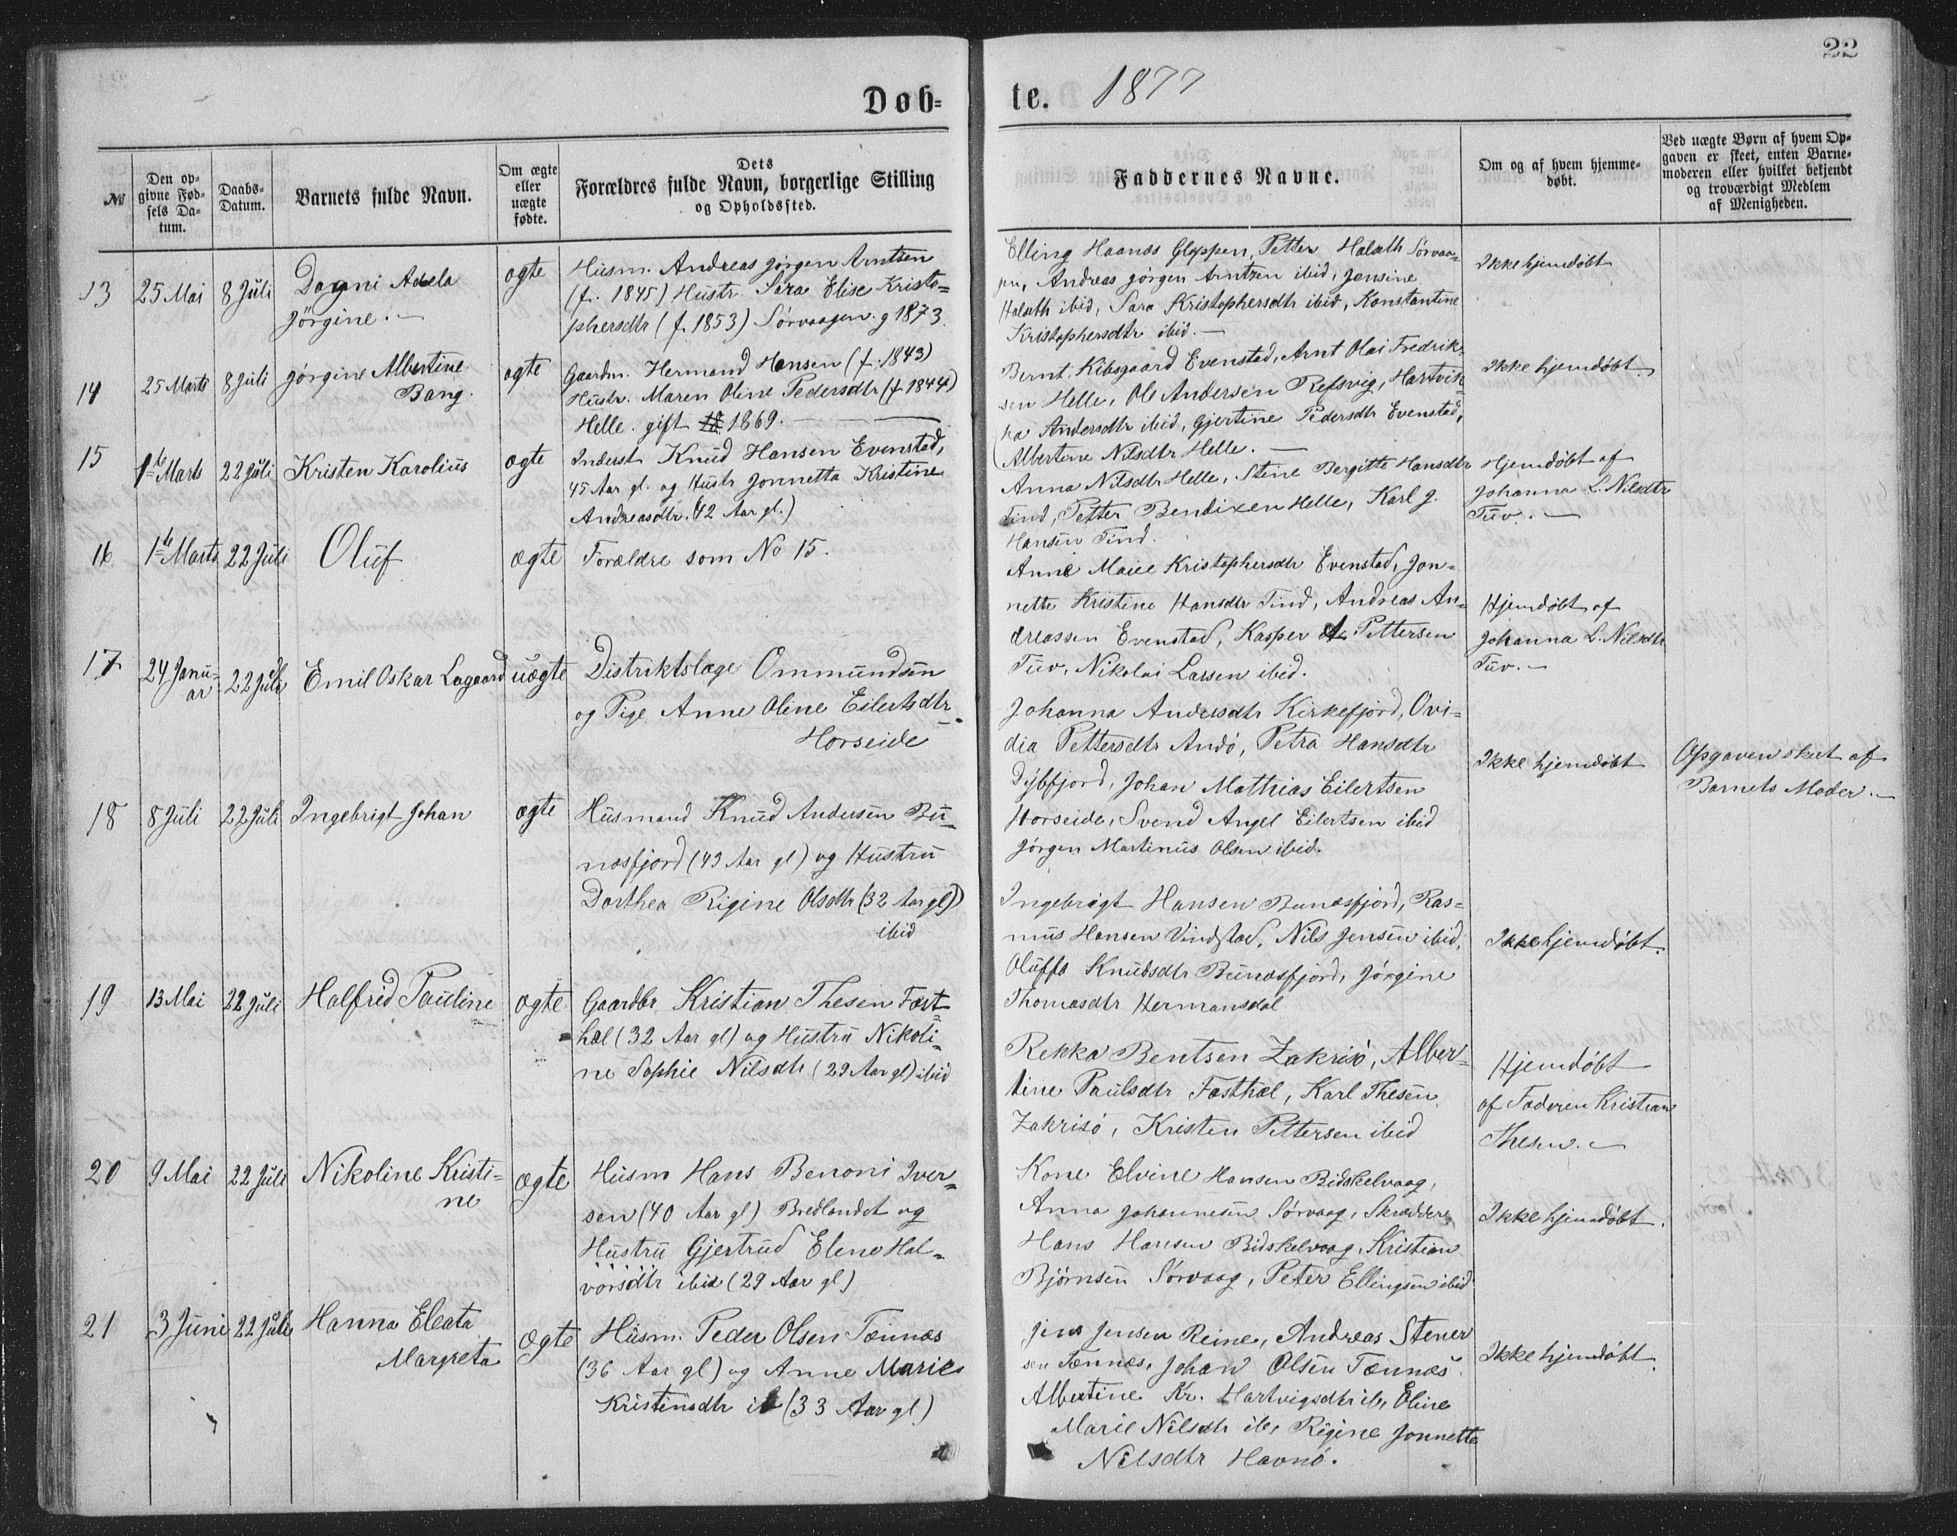 22
Døb=
te. 1877
№
Den op-
givne Fød-
sels Da-
tum.
Daabs-
Datum.
Barnets fulde Navn.
Om ægte
eller
uægte
fødte.
Dets
Forældres fulde Navn, borgerlige Stilling
og Opholdssted.
Faddernes Navne.
Om og af hvem hjemme-
døbt.
Ved uægte Børn af hvem Op-
gaven er skeet, enten Barne-
moderen eller hvilket bekjendt
og troværdigt Medlem
af Menigheden.
13 25 Mai 8 Juli Dagni Adela
Jörgine.
ægte
Husm. Andreas Jörgen Arntsen
(f. 1845) Hustr. Sara Elise Kristo-
phersdtr (f. 1853) Sørvaagen. g 1873.
Elling Haanes Gloppen, Petter Halseth Sørvaa-
gen, Andreas Jörgen Arntzen ibid, Jensine
Halseth ibid, Sara Kristophersdtr ibid, Konstantine
Kristophersdtr ibid.
Ikke hjemdøbt
14 25 Marts 8 Juli Jørgine Albertine
Bang.
ægte
Gaardm. Hermand Hansen (f. 1843)
Hustr. Maren Oline Pedersdtr (f. 1844)
Helle. gift 1869.
Bernt Kibsgaard Evenstad, Arnt Olai Fredrik-
sen Helle, Ole Andersen Refsvig, Hartvik-
ka Andersdtr ibid, Gjertine Pedersdtr Evenstad,
Albertine Nilsdtr Helle.
Ikke hjemdøbt.
15 1ste Marts 22 Juli Kristen Karolius ægte
Inderst Knud Hansen Evenstad,
45 Aar gl. og Hustr Jonnetta Kristine
Andreasdtr. (42 Aar gl.)
Anna Nilsdtr Helle, Stine Bergitte Hansdtr
Tind, Petter Bendixen Helle, Karl J.
Hansen Tind.
Hjemdøbt af
Johanna L. Nilsdtr
Tuv.
16. 1ste Marts 22 Juli Oluf ægte Forældre som No 15.
Anne Marie Kristophersdtr Evenstad, Jon-
nette Kristine Hansdtr Tind, Andreas An-
dreassen Evenstad, Kasper A. Pettersen
Tuv, Nikolai Larsen ibid.
Hjemdøbt af
Johanna L. Nilsdtr
Tuv.
17 24 Janu-
ar
22 Juli Emil Oskar Lagaard uægte
Distriktslæge Ommundsen
og Pige Anne Oline Eilertsdtr
Horseide
Johanna Andersdtr Kirkefjord, Ovi-
dia Pettersdtr Andö, Petra Hansdtr
Dybfjord, Johan Mathias Eilertsen
Horseide, Svend Angel Eilertsen ibid
Jørgen Martinus Olsen ibid.
Ikke hjemdøbt
Opgaven skeet af
Barnets Moder.
18 8 Juli 22 Juli Ingebrigt Johan ægte
Husmand Knud Andersen Bu-
næsfjord (43 Aar gl) og Hustru
Dorthea Rigine Olsdtr (32 Aar gl)
ibid
Ingebrigt Hansen Bunæsfjord, Ras-
mus Hansen Vindstad, Nils Jensen ibid,
Oluffa Knudsdtr Bunæsfjord, Jørgine
Thomasdtr Hermansdal
Ikke hjemdøbt.
19 13 Mai 22 Juli Halfred Pauline ægte
Gaardbr Kristian Thesen Fæst-
hæl (32 Aar gl) og Hustru Nikoli-
ne Sophie Nilsdtr (29 Aar gl) ibid
Rekka Bentsen Zakrisö, Alber-
tine Paulsdtr Fæsthæl, Karl Thesen
Zakrisö, Kristen Pettersen ibid
Hjemdøbt
af Faderen Kristian
Thesen.
20 9 Mai 22 Juli Nikoline Kristi-
ne
ægte
Husm Hans Benoni Iver-
sen (40 Aar gl) Bredlandet og
Hustru Gjertrud Elene Hal-
vorsdtr ibid (29 Aar gl)
Kone Elvine Hansen Bidskelvaag,
Anna Johannesen Sørvaag, Skrædder
Hans Hansen Bidskelvaag, Kristian
Bjørnsen Sørvaag, Peter Ellingsen ibid
Ikke hjemdøbt.
21 3 Juni 22 Juli Hanna Eleata
Margreta
ægte
Husm. Peder Olsen Tennæs
(36 Aar gl) og Anne Marie
Kristensdtr ib (33 Aar gl)
Jens Jensen Reine, Andreas Stener
sen Tennæs, Johan Olsen Tennæs
Albertine Kr. Hartvigsdtr ib, Eline
Marie Nilsdtr ib, Rigine Jonnette
Nilsdtr Havnö.
Ikke hjemdøbt.